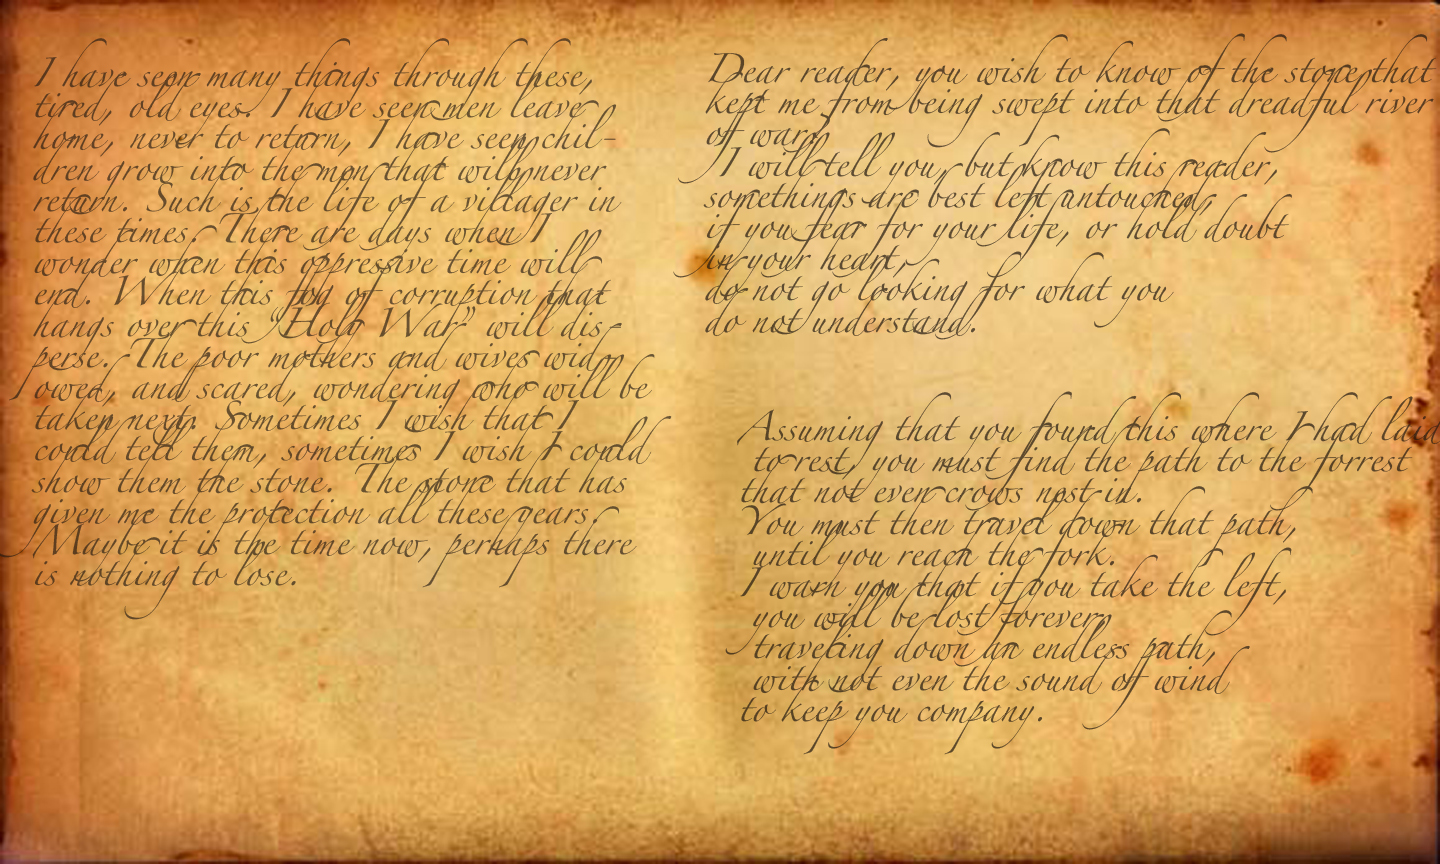 I have seen many things through these,
tired, old eyes. I have seen men leave
home, never to return, I have seen chil-
dren grow into the men that will never
return. Such is the life of a villager in
these times. There are days when I
wonder when this oppressive time will
end. When this fog of corruption that
hangs over this "Holy War" will dis-
perse. The poor mothers and wives wid-
owed, and scared, wondering who will be
taken next. Sometimes I wish that I
could tell them, sometimes I wish I could
show them the stone. The stone that has
given me the protection all these years.
Maybe it is the time now, perhaps there
is nothing to lose.
Dear reader, you wish to know of the stone that
kept me from being swept into that dreadful river
of war,
I will tell you, but know this reader,
somethings are best left untouched,
if you fear for your life, or hold doubt
in your heart,
do not go looking for what you
do not understand.
Assuming that you found this where I had laid
to rest, you must find the path to the forrest
that not even crows nest in.
You must then travel down that path,
until you reach the fork.
I warn you that if you take the left,
you will be lost forever,
traveling down an endless path,
with not even the sound of wind
to keep you company.